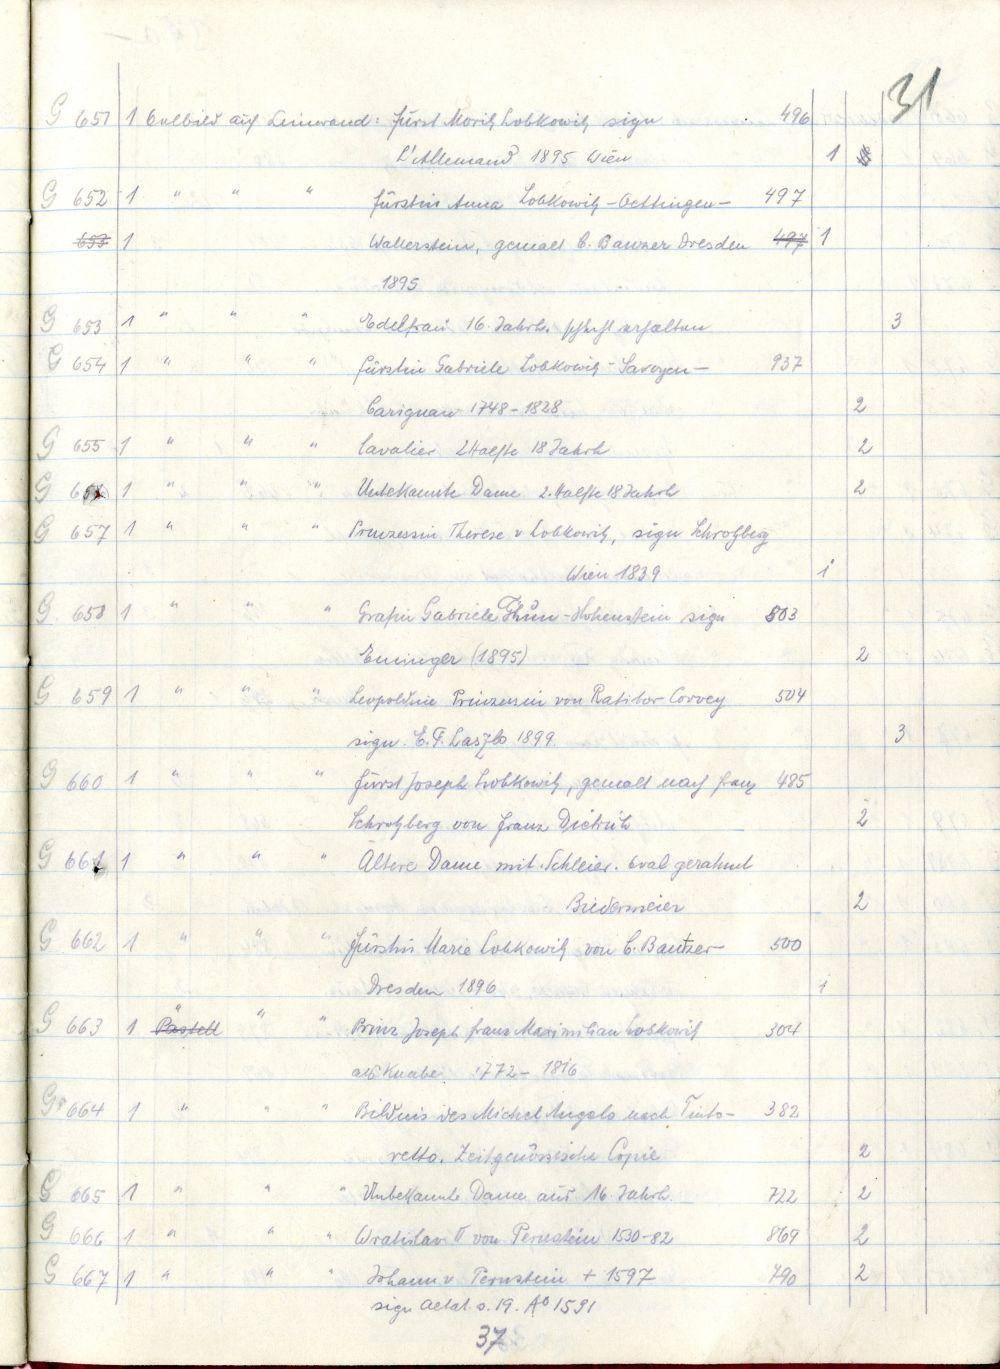 31
G 651 1 Oelbild auf Leinwand: Fürst Moritz Lobkowitz sign 496
L'Allemand 1895 Wien 1
G 652 1 " " " Fürstin Anna Lobkowitz-Oettingen- 497
653 1 Wallerstein, gemalt C. Banzer Dresden 497 1
1895
G 653 1 " " " Edelfrau 16. Jahrh. schlecht erhalten 3
G 654 1 " " " Fürstin Gabriele Lobkowitz-Savoyen- 937
Carignan 1748-1828 2
G 655 1 " " " Cavalier 2 Haelfte 18 Jahrh 2
G 656 1 " " " Unbekannte Dame 2. Haelfte 18 Jahrh 2
G 657 1 " " " Prinzessin Therese v Lobkowitz, sign Schrotzberg
Wien 1839 1
G. 658 1 " " " Grafin Gabriele Thun-Hohenstein sign 503
Eminger (1895) 2
G 659 1 " " " Leopoldine Prinzessin von Ratibor Corvey 504
sign. E. F. Laszlo 1899. 3
G 660 1 " " " Fürst Joseph Lobkowitz, gemalt nach Franz 485
Schrotzberg von Franz Dietrich 2
G 661 1 " " " Ältere Dame mit Schleier. oval gerahmt
Biedermeier 2
G 662 1 " " " Fürstin Marie Lobkowitz von C. Bantzer- 500
Dresden 1896 1
G 663 1 Pastell " " " Prinz Joseph Franz Maximilian Lobkowitz 304
als Knabe 1772-1816
G 664 1 " " " Bildnis des Michel Angelo nach Tinto- 382
retto. Zeitgenössische Copie 2
G 665 1 " " " Unbekannte Dame aus 16. Jahrh. 722 2
G 666 1 " " " Wratislav II von Pernstein 1530-82 869 2
G 667 1 " " " Johann v Pernstein + 1597 790 2
sign aetat s. 19. Aº 1591
37